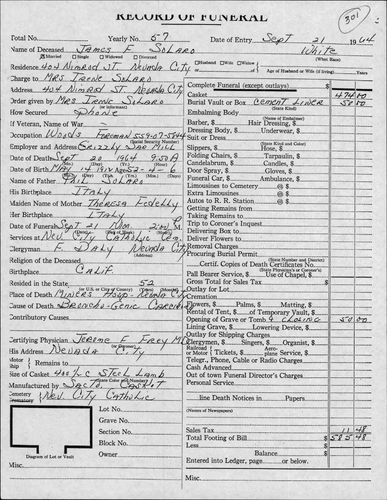 RECORD OF FUNERAL
301
Total No. Yearly No. 67 Date of Entry Sept 21 1964
Name of Deceased James F. Solaro White
Married Single Widowed Divorced Husband Widow of (What Race)
Residence 404 Nimrod St. Nevada City Age of Husband or Wife (if living) Years
Charge to Mrs Irene Solaro
Address 404 Nimrod St Nevada City
Order given by Mrs Irene Solaro
How Secured Phone
If Veteran, Name of War
Occupation Woods Foreman
Employer and Address Grizzly Saw Mill
Date of Death Sept 20 1964 9:50 A
Date of Birth May 14 1912 52-4-6
Name of Father Paul Solaro
His Birthplace Italy
Maiden Name of Mother Theresa
Her Birthplace Italy
Date of Funeral Sept 21 Mon 2:00 P.M.
Services at Nev. City Catholic Cem.
Clergyman F. Daly Nevada City
Religion of the Deceased
Birthplace Calif.
Resided in the State 52
Place of Death Miners Hosp. Nevada City
Cause of Death Broncho-Genic Carcinoma
Contributory Causes
Certifying Physician Jerome Frey MD
His Address Nevada City
Remains to
Motor Ship
Size of Casket Steel Lamb
Manufactured by Sacto Casket
Cemetery Nev. City Catholic
Lot No.
Grave No.
Section No.
Block No.
Owner
Diagram of Lot or Vault
Misc.
Complete Funeral (except outlays) $
Casket 474 00
Burial Vault or Box Cement Liner 50 00
Embalming Body
Barber, $ Hair Dressing, $
Dressing Body, $ Underwear, $
Suit or Dress
Slippers, $ Hose, $
Folding Chairs, $ Tarpaulin, $
Candelabrum, $ Candles, $
Door Spray, $ Gloves, $
Funeral Car, $ Ambulance, $
Limousines to Cemetery @ $
Extra Limousines @ $
Autos to R. R. Station @ $
Getting Remains from
Taking Remains to
Trip to Coroner's Inquest
Delivering Box to
Deliver Flowers to
Removal Charges
Procuring Burial Permit
Certif. Copies of Death Certificates No.
Pall Bearer Service, $ Use of Chapel, $
Gross Total for Sales Tax $
Outlay for Lot
Cremation
Flowers, $ Palms, $ Matting, $
Rental of Tent, $ of Temporary Vault, $
Opening of Grave or Tomb & Closing 50 00
Lining Grave, $ Lowering Device, $
Outlay for Shipping Charges
Clergymen, $ Singers, $ Organist, $
Railroad or Motor Tickets, $ Aeroplane Service, $
Telgr., Phone, Cable or Radio Charges
Cash Advanced
Out of town Funeral Director's Charges
Personal Service
line Death Notices in Papers
(Names of Newspapers)
Sales Tax 11 48
Total Footing of Bill $ 585 48
Less $
Balance $
Entered into Ledger, page or below.
Misc.